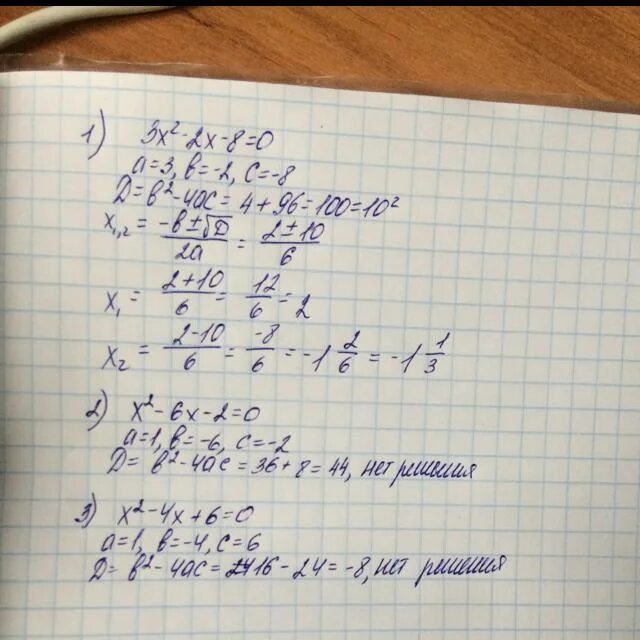 1) 3x²-2x-8=0
a=3, b=-2, c=-8
D=b²-4ac=4+96=100=10²
x₁,₂ = (-b±√D)/2a = (2±10)/6
x₁ = (2+10)/6 = 12/6 = 2
x₂ = (2-10)/6 = -8/6 = -1 2/6 = -1 1/3
2) x²-6x-2=0
a=1, b=-6, c=-2
D= b²-4ac=36+8=44, нет решения
3) x²-4x+6=0
a=1, b=-4, c=6
D= b²-4ac= 16-24=-8, нет решения